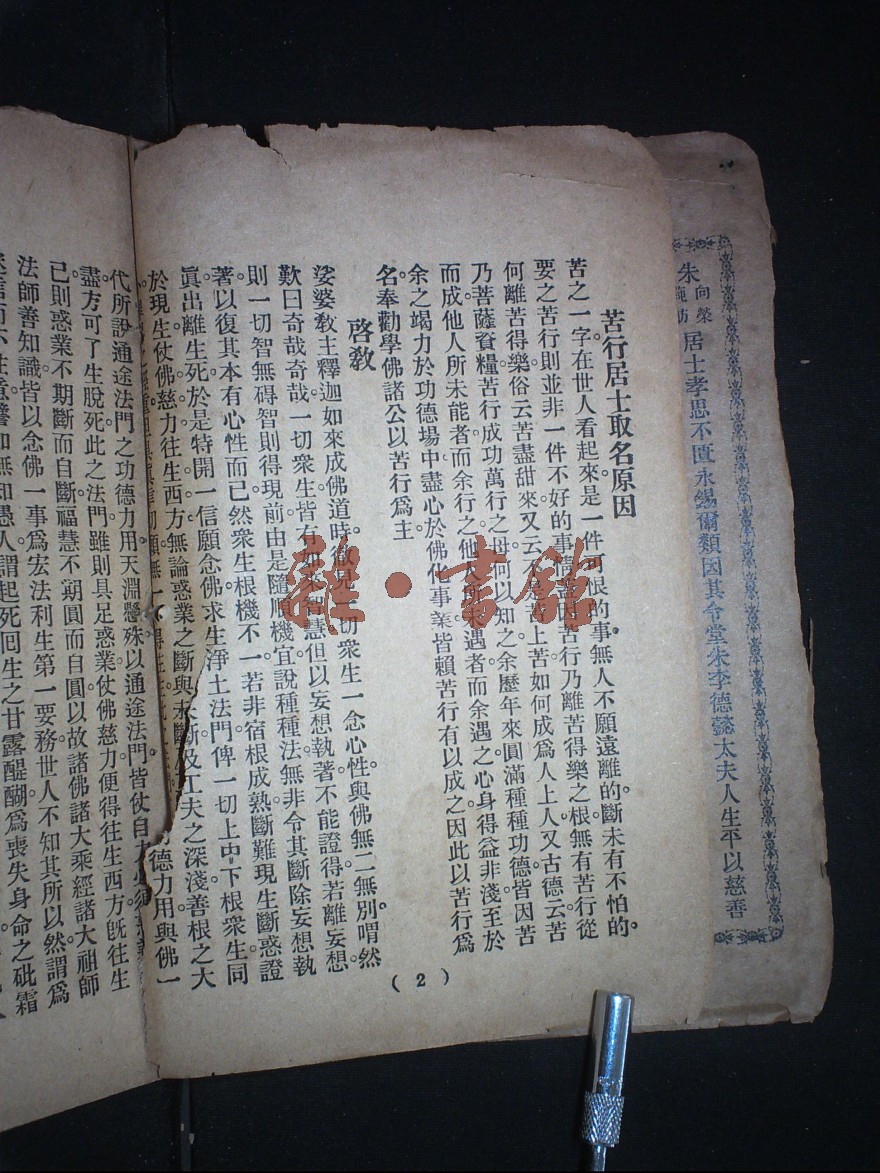 朱向榮
居士孝思不匱永錫爾類因其令堂朱李德懿太夫人生平以慈善
苦行居士取名原因
苦之一字在世人看起來。是一件可恨的事無人不願遠離的。斷未有不怕的。
要之苦行則並非一件不好的事情。苦行乃離苦得樂之根無有苦行從
何離苦得樂俗云苦盡甜來又云不是苦上苦如何成爲人上人又古德云苦
乃菩薩資糧苦行成功萬行之母何以知之余歷年來圓滿種種功德皆因苦
而成他人所未能者而余行之他人所未遇者而余遇之心身得益非淺至於
余之竭力於功德場中盡心於佛化事業皆賴苦行有以成之因此以苦行爲
名奉勸學佛諸公以苦行爲主
啓教
娑婆教主釋迦如來成佛道時徹見一切衆生一念心性與佛無二無別喟然
歎曰奇哉奇哉一切衆生皆有如來智慧但以妄想執著不能證得若離妄想
則一切智無碍智則得現前由是隨順機宜說種種法無非令其斷除妄想執
著以復其本有心性而已然衆生根機不一若非宿根成熟斷難現生斷惑證
眞出離生死於是特開一信願念佛求生淨土法門俾一切上中下根衆生同
於現生仗佛慈力往生西方無論惑業之斷與未斷及工夫之深淺善根之大
德力用與佛一
代所說通途法門之功德力用天淵懸殊以通途法門皆仗自力必須
盡方可了生脫死此之法門雖則具足惑業仗佛慈力便得往生西方旣往生
已則惑業不期斷而自斷福慧不期圓而自圓以故諸佛諸大乘經諸大祖師
法師善知識皆以念佛一事爲宏法利生第一要務世人不知其所以然謂爲
無知愚人謂起死回生之甘露醍醐爲喪失身命之砒霜
( 2 )
雜·書館